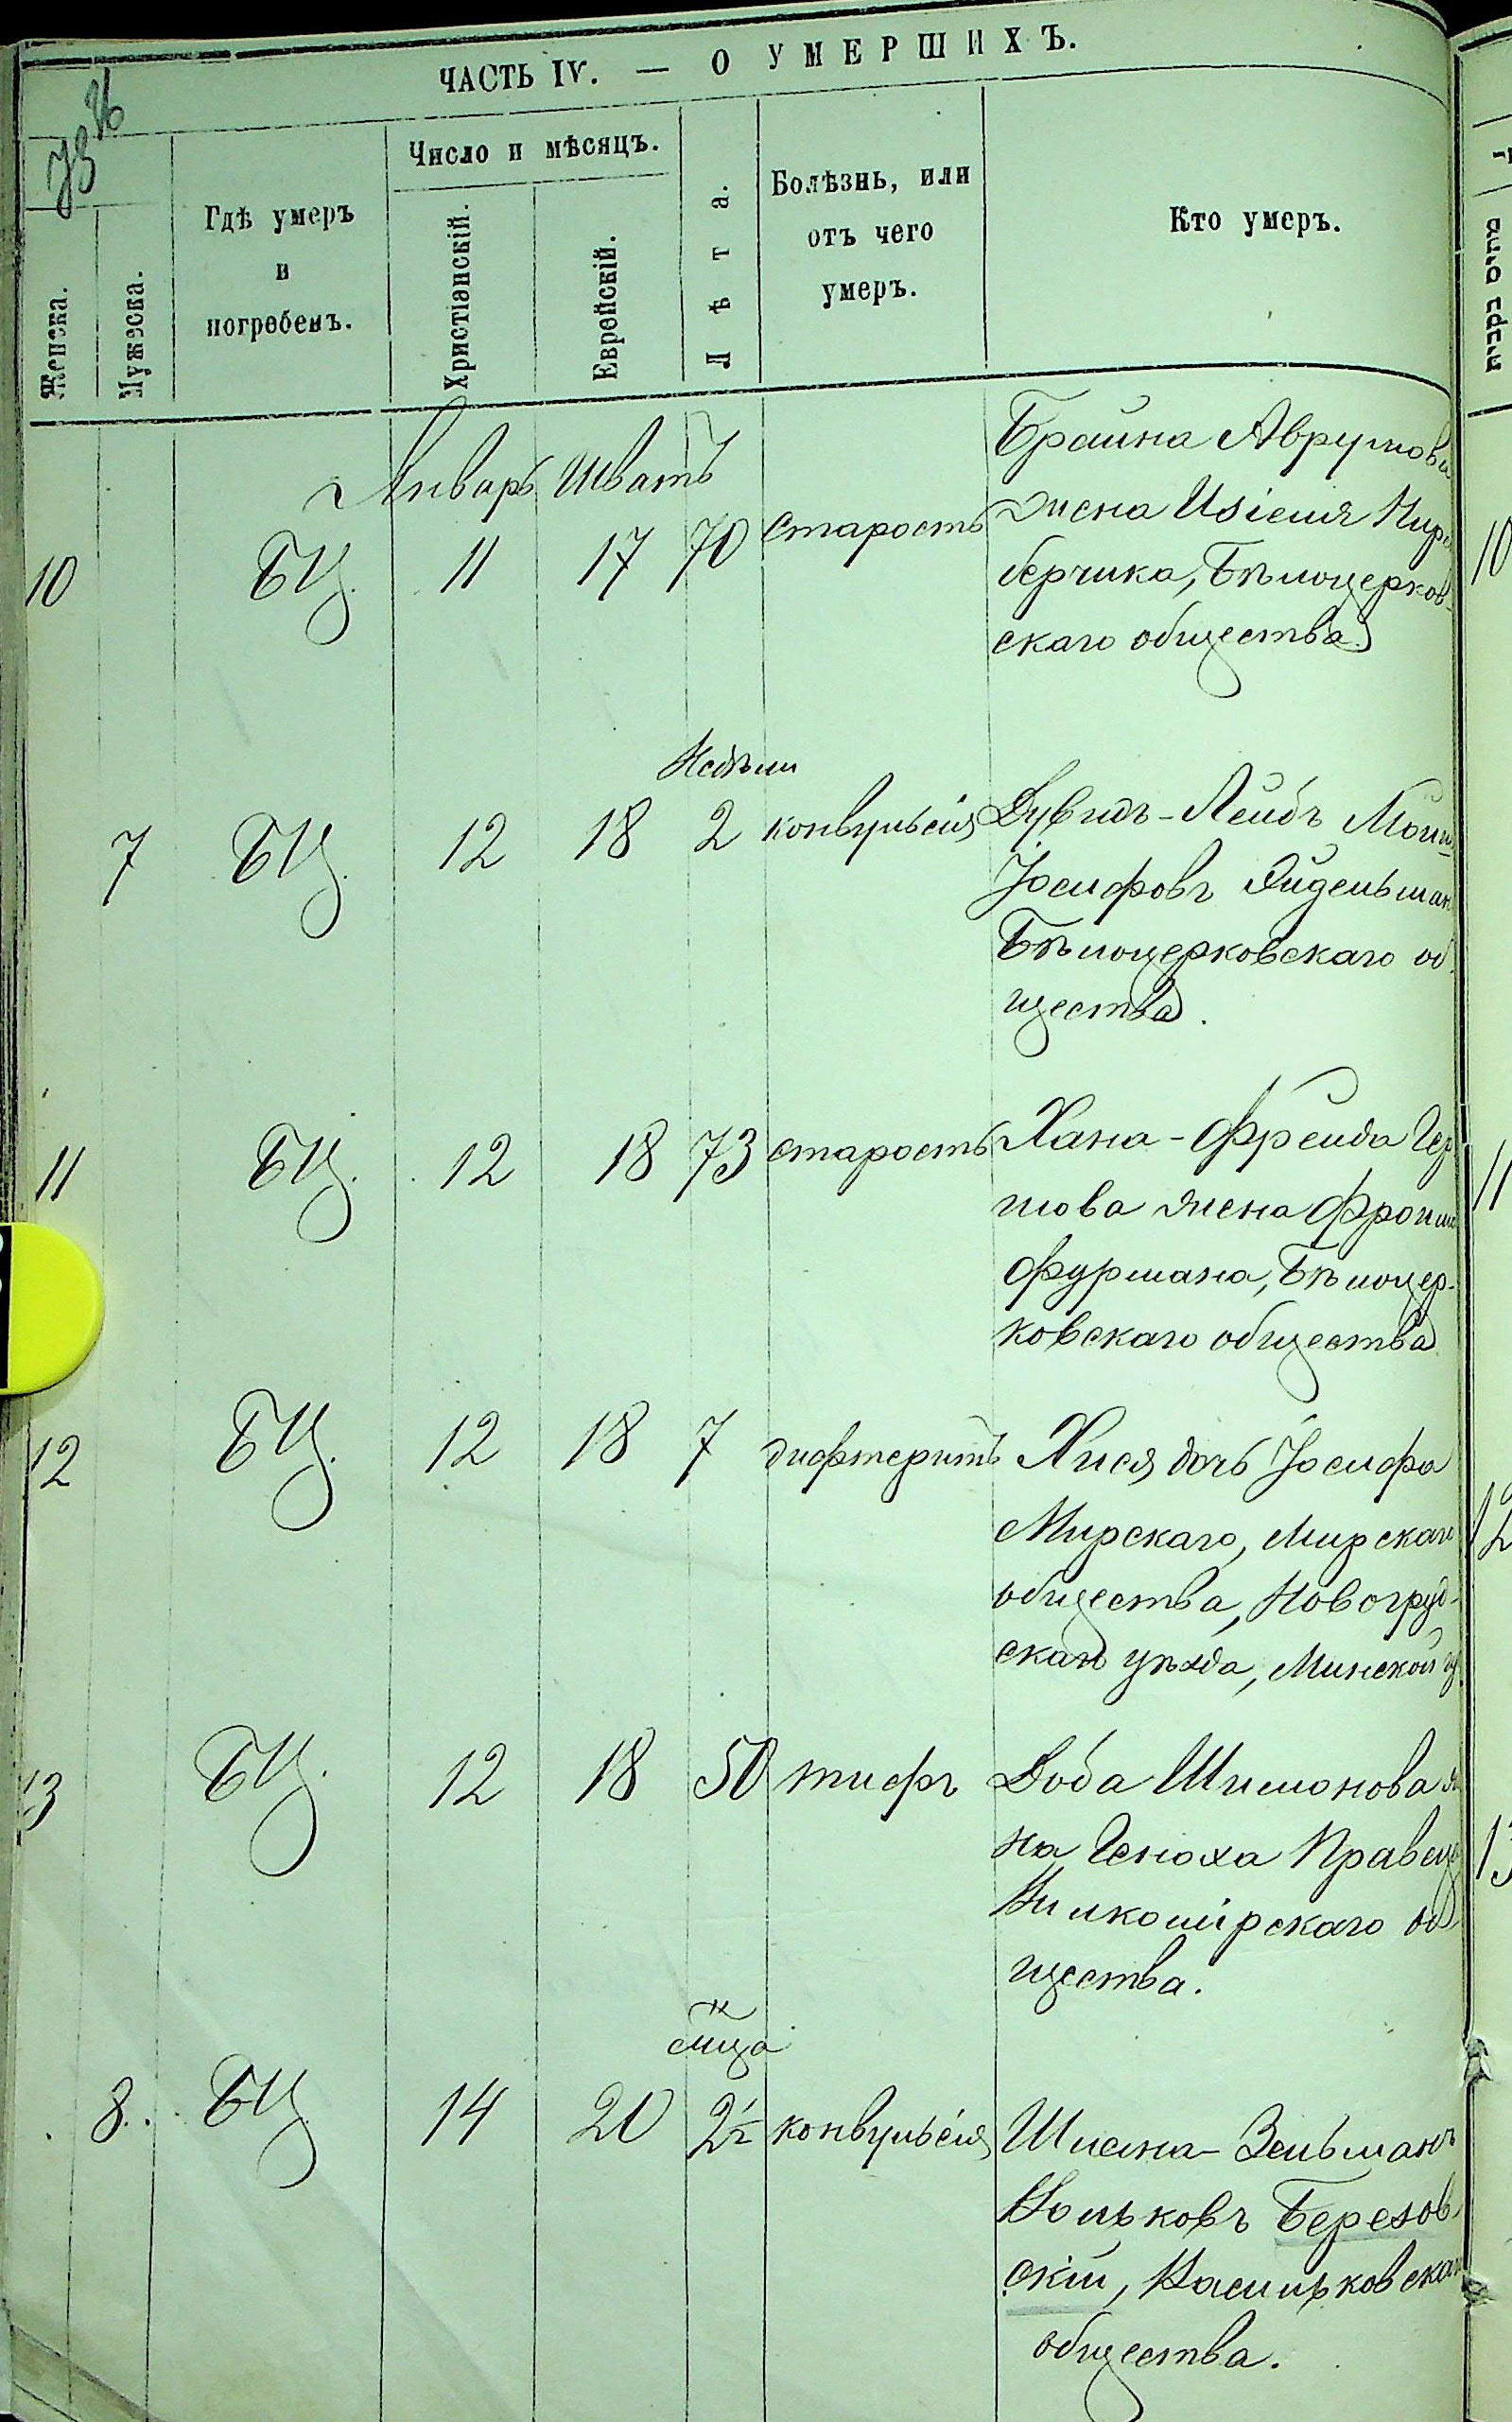 ЧАСТЬ IV. — О УМЕРШИХЪ.
Женска.
Мужеска.
Гдѣ умеръ
и
погребенъ.
Число и мѣсяцъ.
Христіанскій.
Еврейскій.
Лѣта.
Болѣзнь, или
отъ чего
умеръ.
Кто умеръ.
Январь Шватъ
10 БЦ. 11 17 70 старость
Брайна Аврумова
жена
берчика, Бѣлоцерков-
скаго общества
Недѣли
7 БЦ. 12 18 2 конвульсія Дувидъ-Лейбъ
Іосифовъ
Бѣлоцерковскаго об-
щества.
11 БЦ. 12 18 73 старость Хана-Фрейда Гер
шова жена
Фурмана, Бѣлоцер-
ковскаго общества
12 БЦ. 12 18 7 дифтеритъ Хися дочь Іосифа
Мирскаго, Мирскаго
общества, Новогруд-
скаго уѣзда, Минской
13 БЦ. 12 18 50 тифъ Доба Шимонова
на Геноха
Вилкомірскаго об
щества.
мца
8. БЦ 14 20 2½ конвульсія Зельманъ
Вольковъ Березов-
скій, Васильковскаго
общества.
10
11
12
13